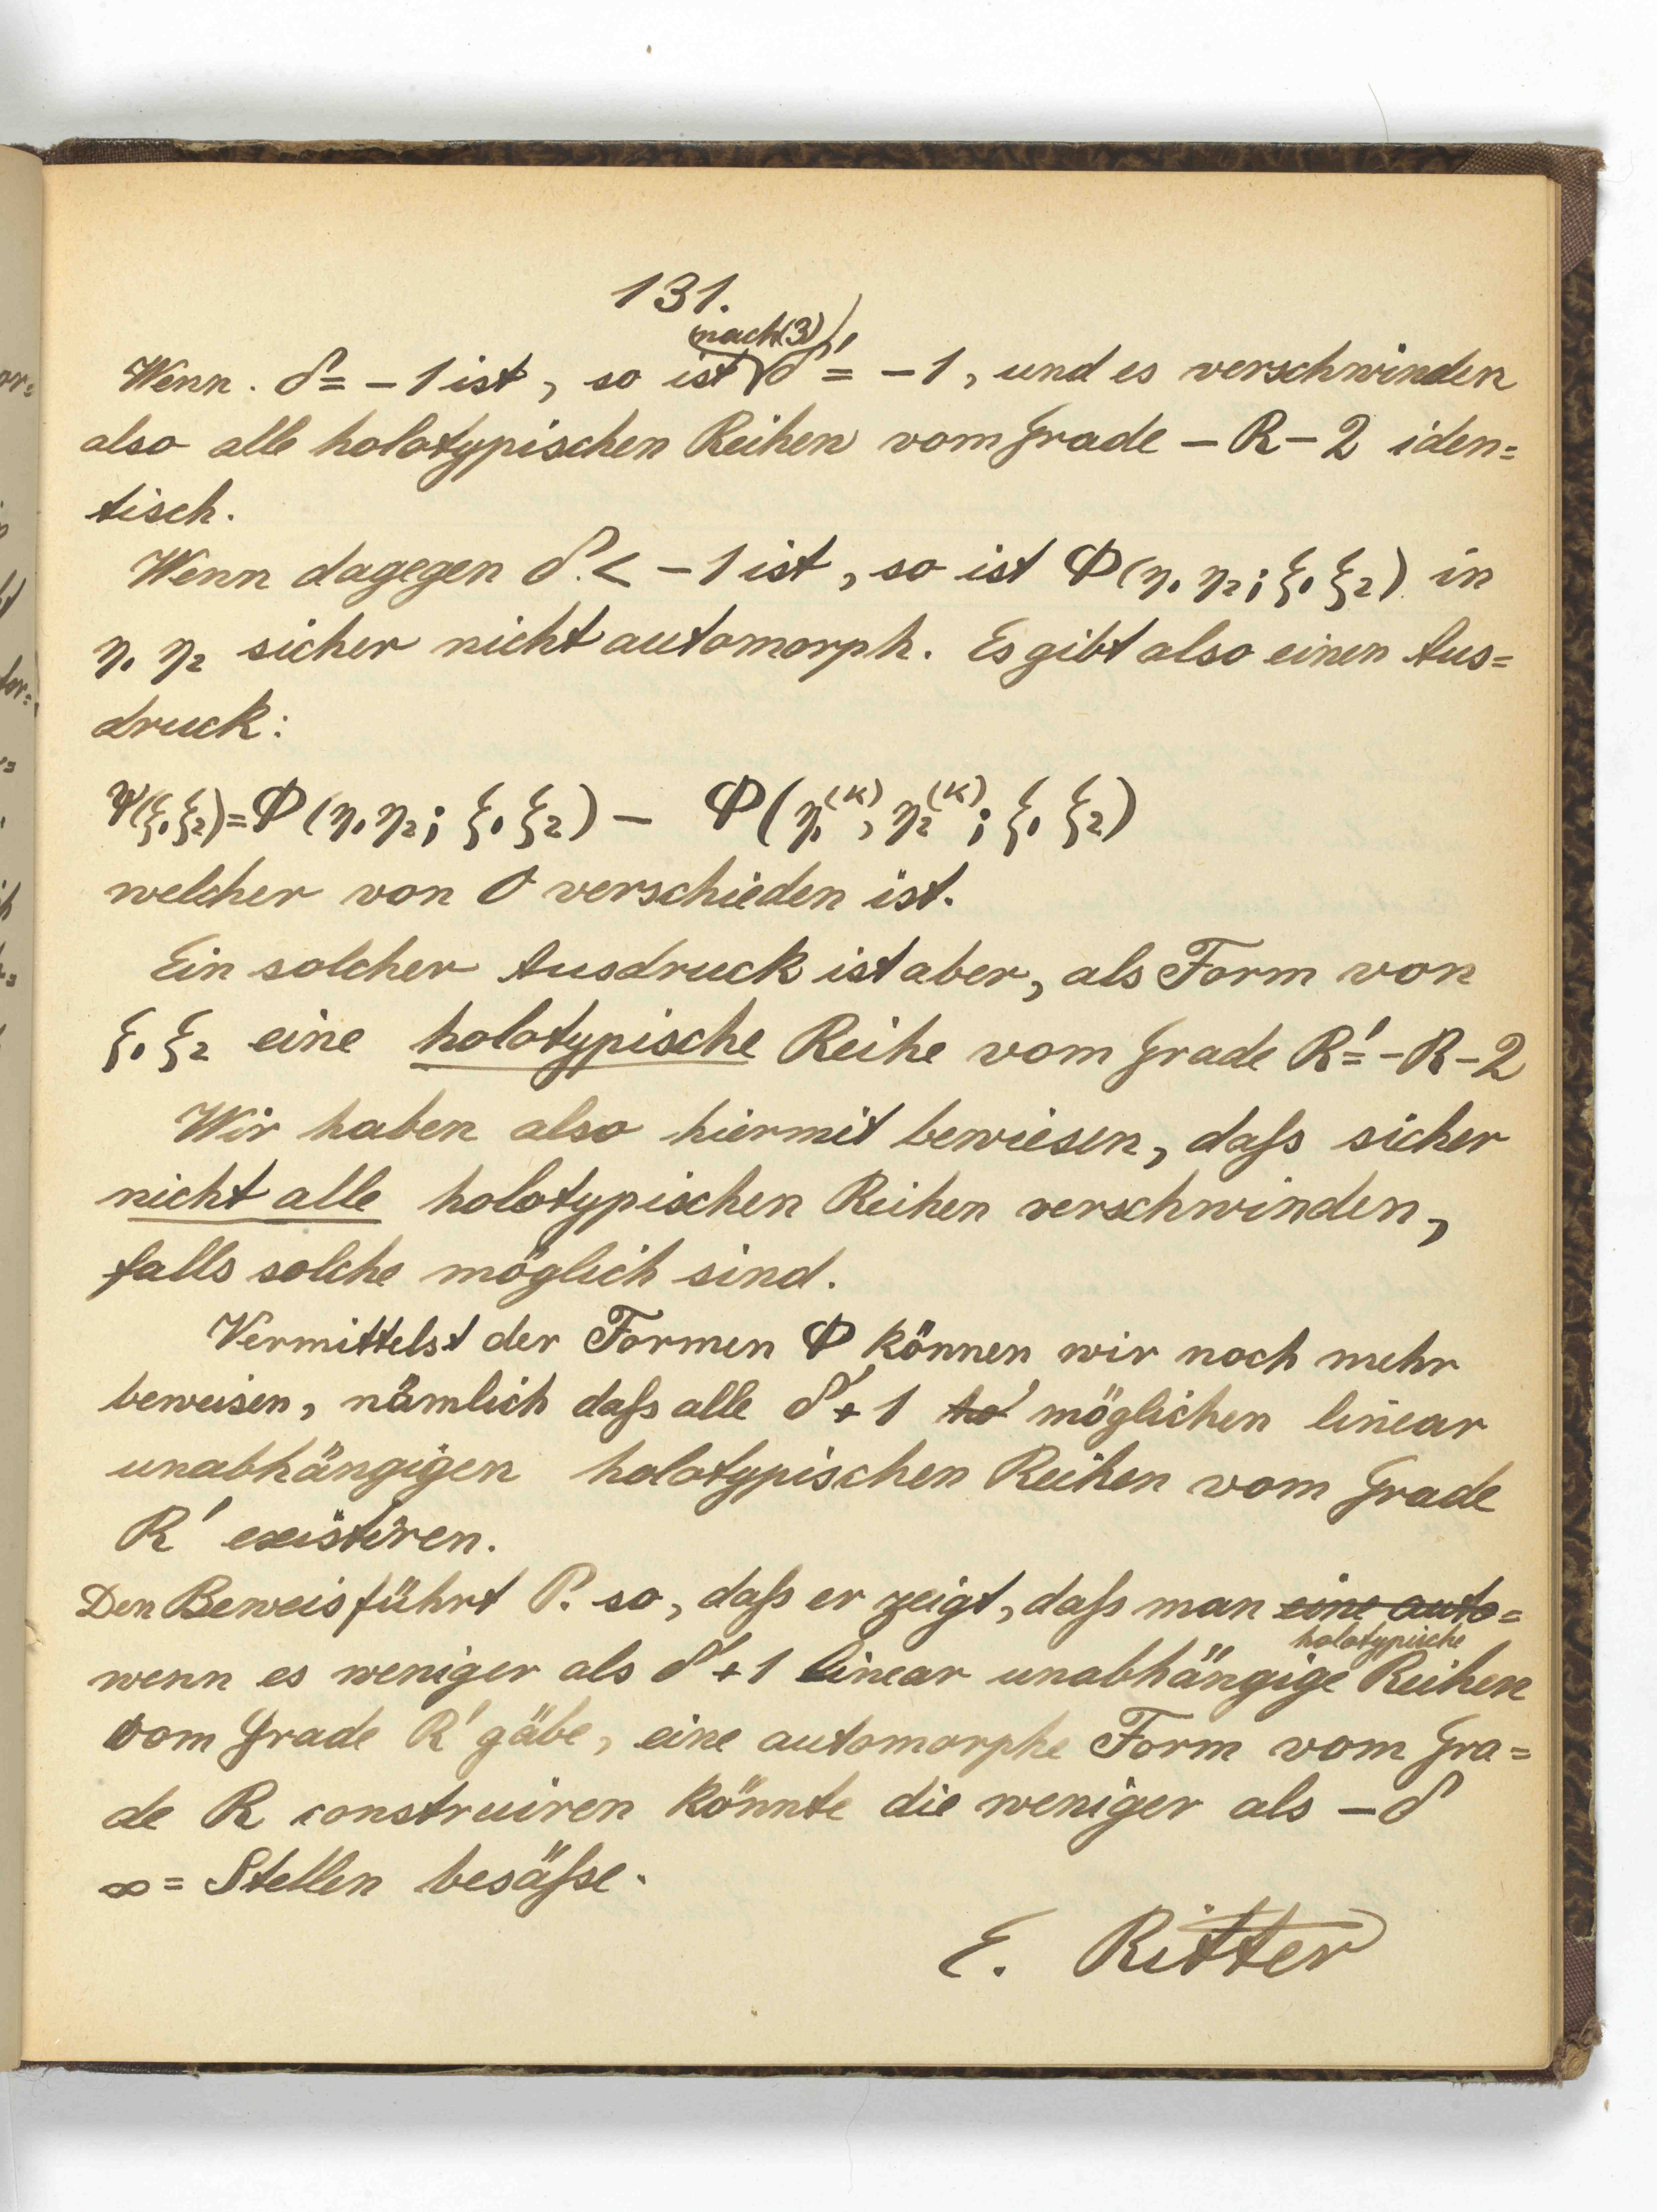 131.
Wenn. δ = – 1 ist, so ist (nach (3)) δ' = – 1, und es verschwinden
also alle holotypischen Reihen vom Grade – R – 2 iden=
tisch.
Wenn dagegen δ < – 1 ist, so ist Φ(η₁ η₂; ξ₁ ξ₂) in
η₁ η₂ sicher nicht automorph. Es gibt also einen Aus=
druck:
Ψ(ξ₁ξ₂) = Φ(η₁ η₂; ξ₁ ξ₂) – Φ(η₁⁽ᴷ⁾, η₂⁽ᴷ⁾; ξ₁ ξ₂)
welcher von 0 verschieden ist.
Ein solcher Ausdruck ist aber, als Form von
ξ₁ ξ₂ eine holotypische Reihe vom Grade R' = – R – 2
Wir haben also hiermit bewiesen, daſs sicher
nicht alle holotypischen Reihen verschwinden,
falls solche möglich sind.
Vermittelst der Formen Φ können wir noch mehr
beweisen, nämlich daſs alle δ' + 1 ho möglichen linear
unabhängigen holotypischen Reihen vom Grade
R' existiren.
Den Beweis führt P. so, daſs er zeigt, daſs man eine auto=
wenn es weniger als δ' + 1 linear unabhängige holotypische Reihen
vom Grade R' gäbe, eine automorphe Form vom Gra=
de R construiren könnte die weniger als – δ
∞ = Stellen besäſse.
E. Ritter